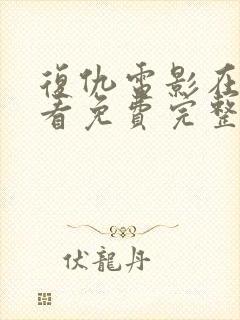 復仇電影在
看免費完整
伏龍丹